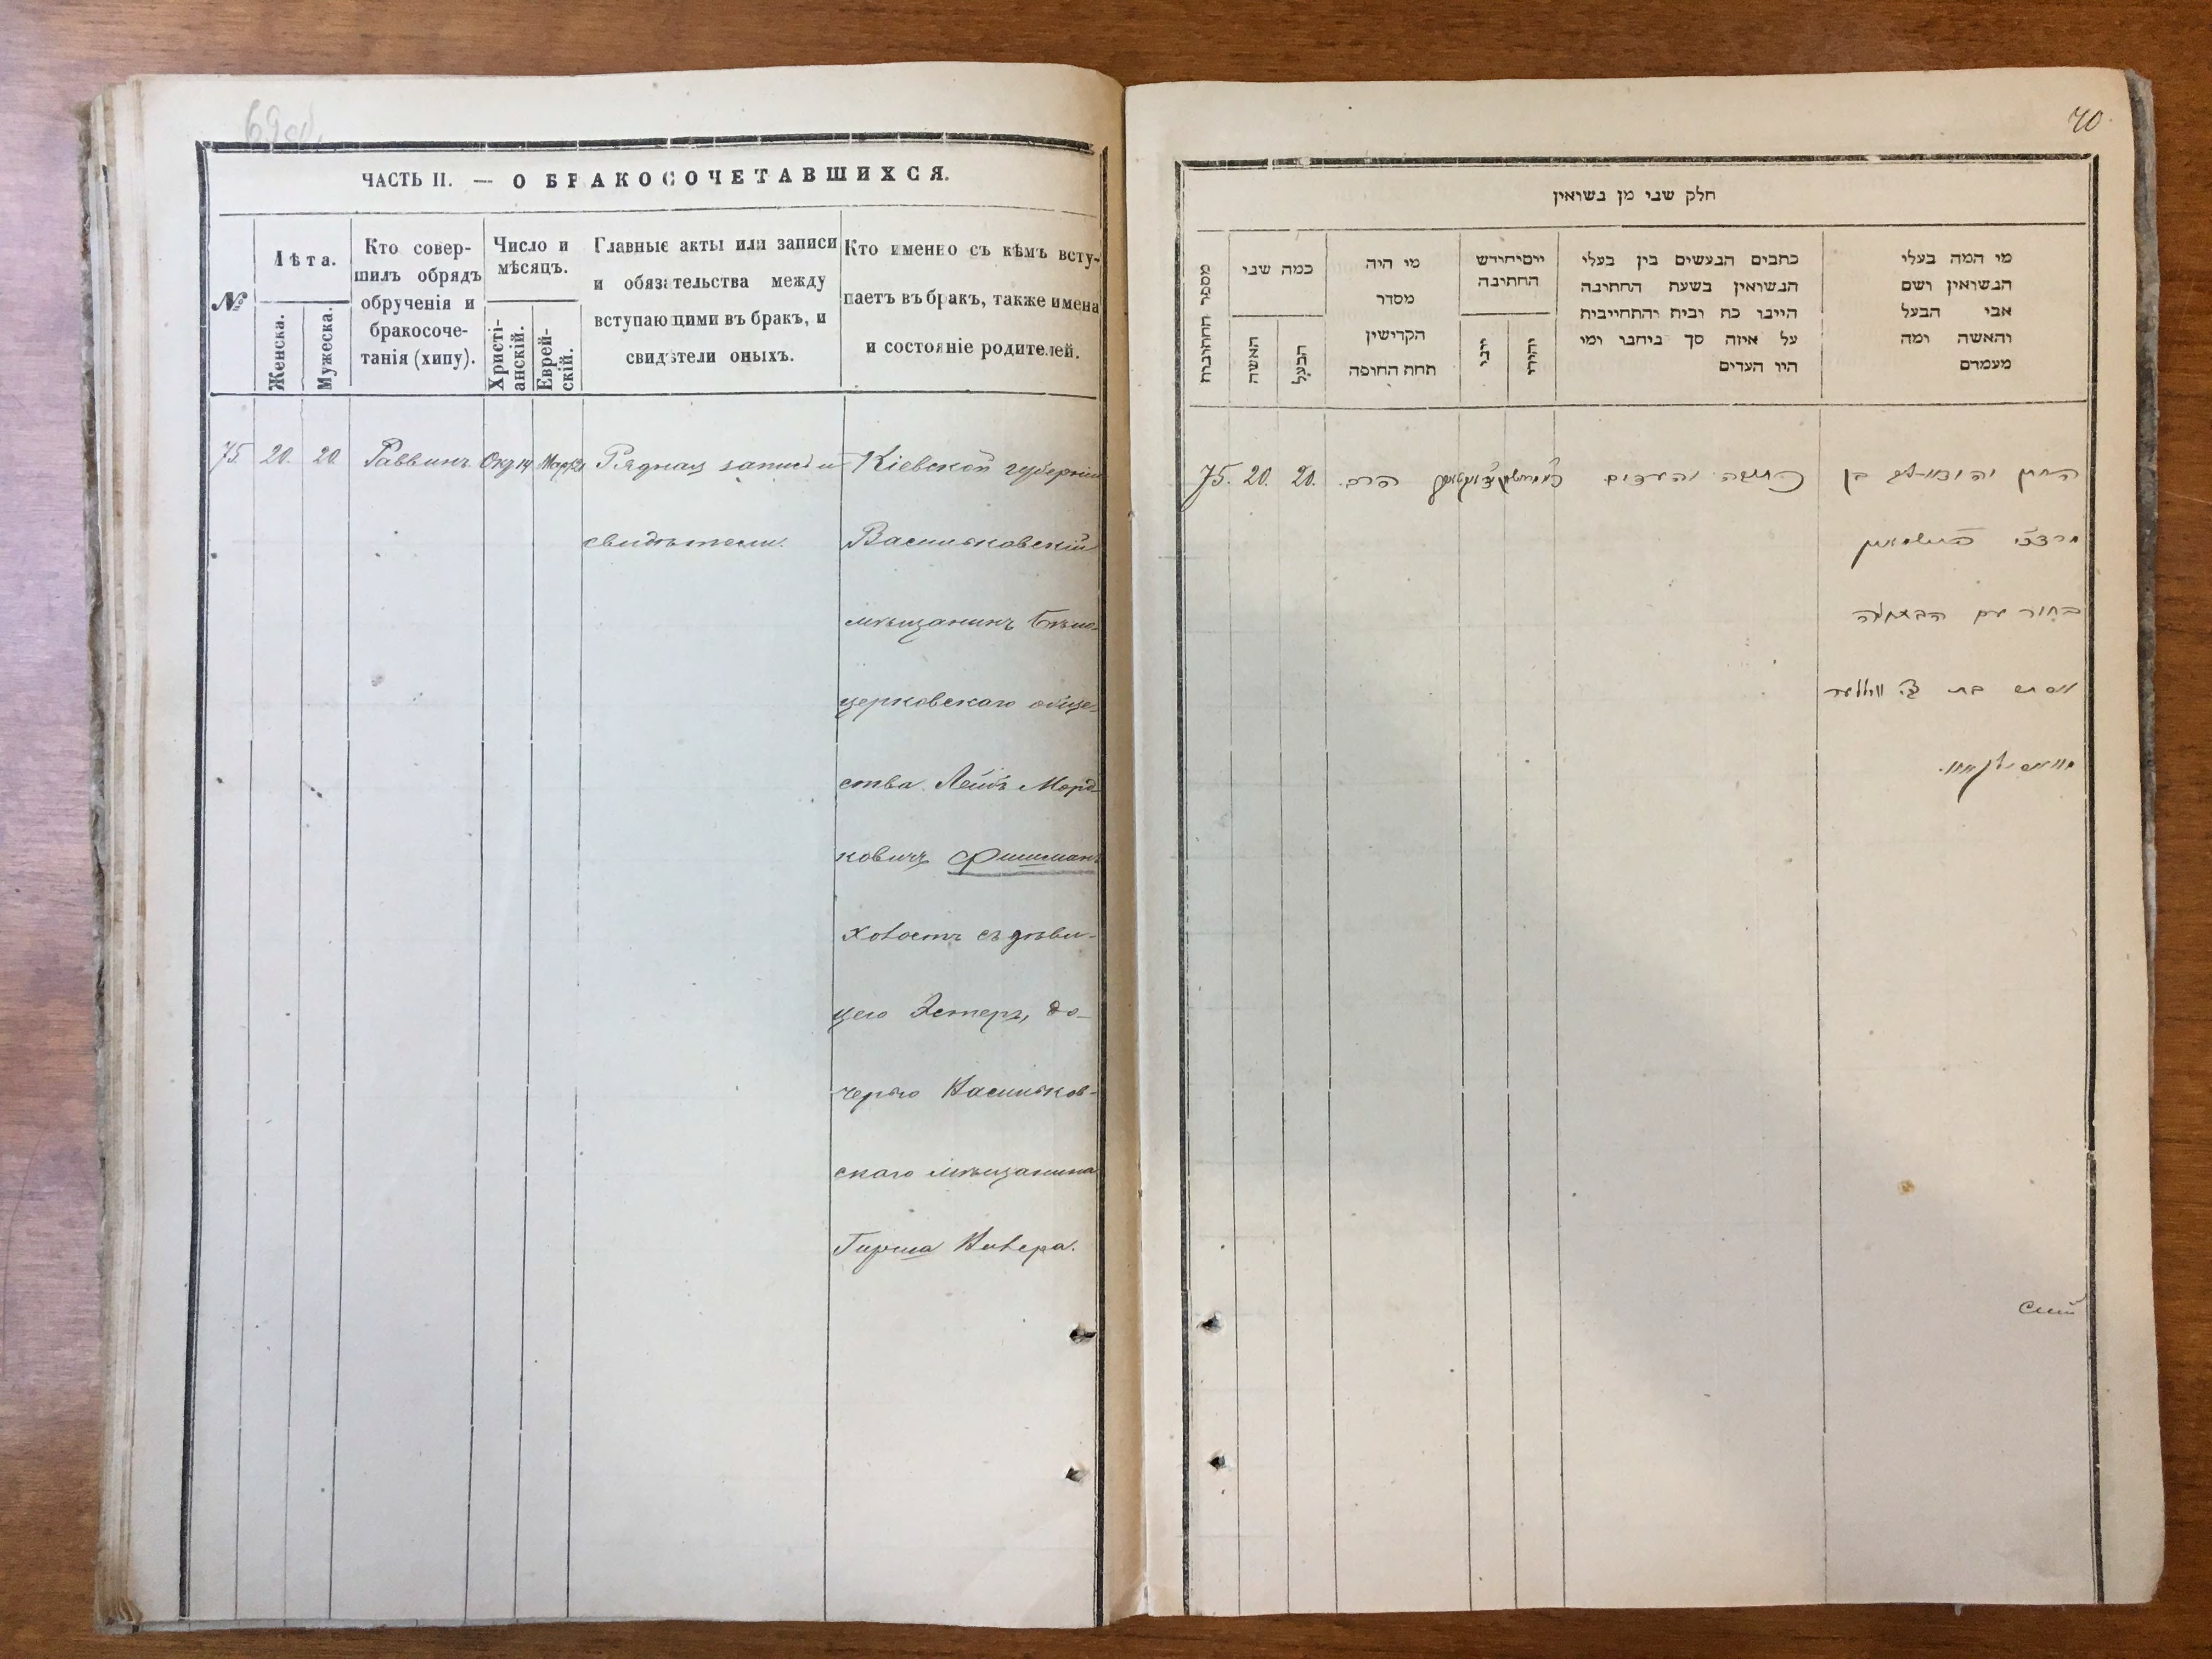 69 об.
ЧАСТЬ II. — О БРАКОСОЧЕТАВШИХСЯ.
№
Лѣта.
Женска.
Мужеска.
Кто совер-
шилъ обрядъ
обрученія и
бракосоче-
танія (хипу).
Число и
мѣсяцъ.
Христі-
анскій.
Еврей-
скій.
Главные акты или записи
и обязательства между
вступающими въ бракъ, и
свидѣтели оныхъ.
Кто именно съ кѣмъ всту-
паетъ въ бракъ, также имена
и состояніе родителей.
75. 20. 20. Раввинъ. Рядная запись и Кіевской губерніи
свидѣтели. Васильковскій
мѣщанинъ Бѣло-
церковскаго обще-
ства Лейбъ Морд
ковичъ Фишманъ
холостъ съ дѣви-
цею Эстеръ, до-
черью Васильков-
скаго мѣщанина
Гирша
70
חלק שני מן נשואין
מספר החתונות
כמה שני
האשה
הבעל
מי היה
מסדר
הקדישין
תחת החופה
יום וחודש
החתונה
יוני
יהודי
כתבים הנעשים בין בעלי
הנשואין בשעת החתונה
היינו כת ובית והתחייבית
על איזה סך ביחבו ומי
היו העדים
מי המה בעלי
הנשואין ושם
אבי הבעל
והאשה ומה
מעמדם
75. 20. 20. הרב כתובה והעדים החתן יהודא ליב בן
מרדכי פישמאן
בחור עם הבתולה
אסתר בת צבי